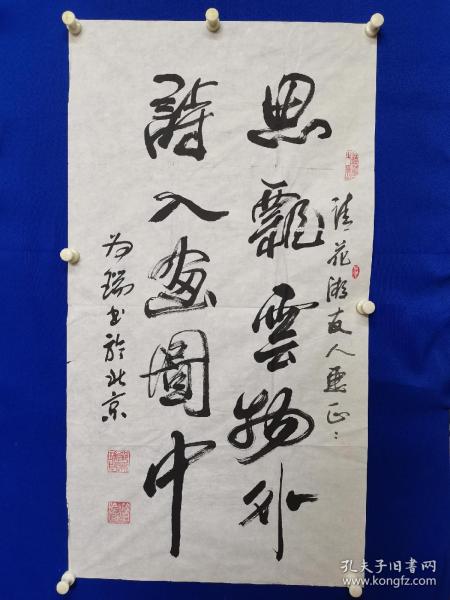 思飄雲物外
詩入畫圖中
請花游友人惠正
为瑞书於北京
孔夫子旧书网
www.kongfz.com